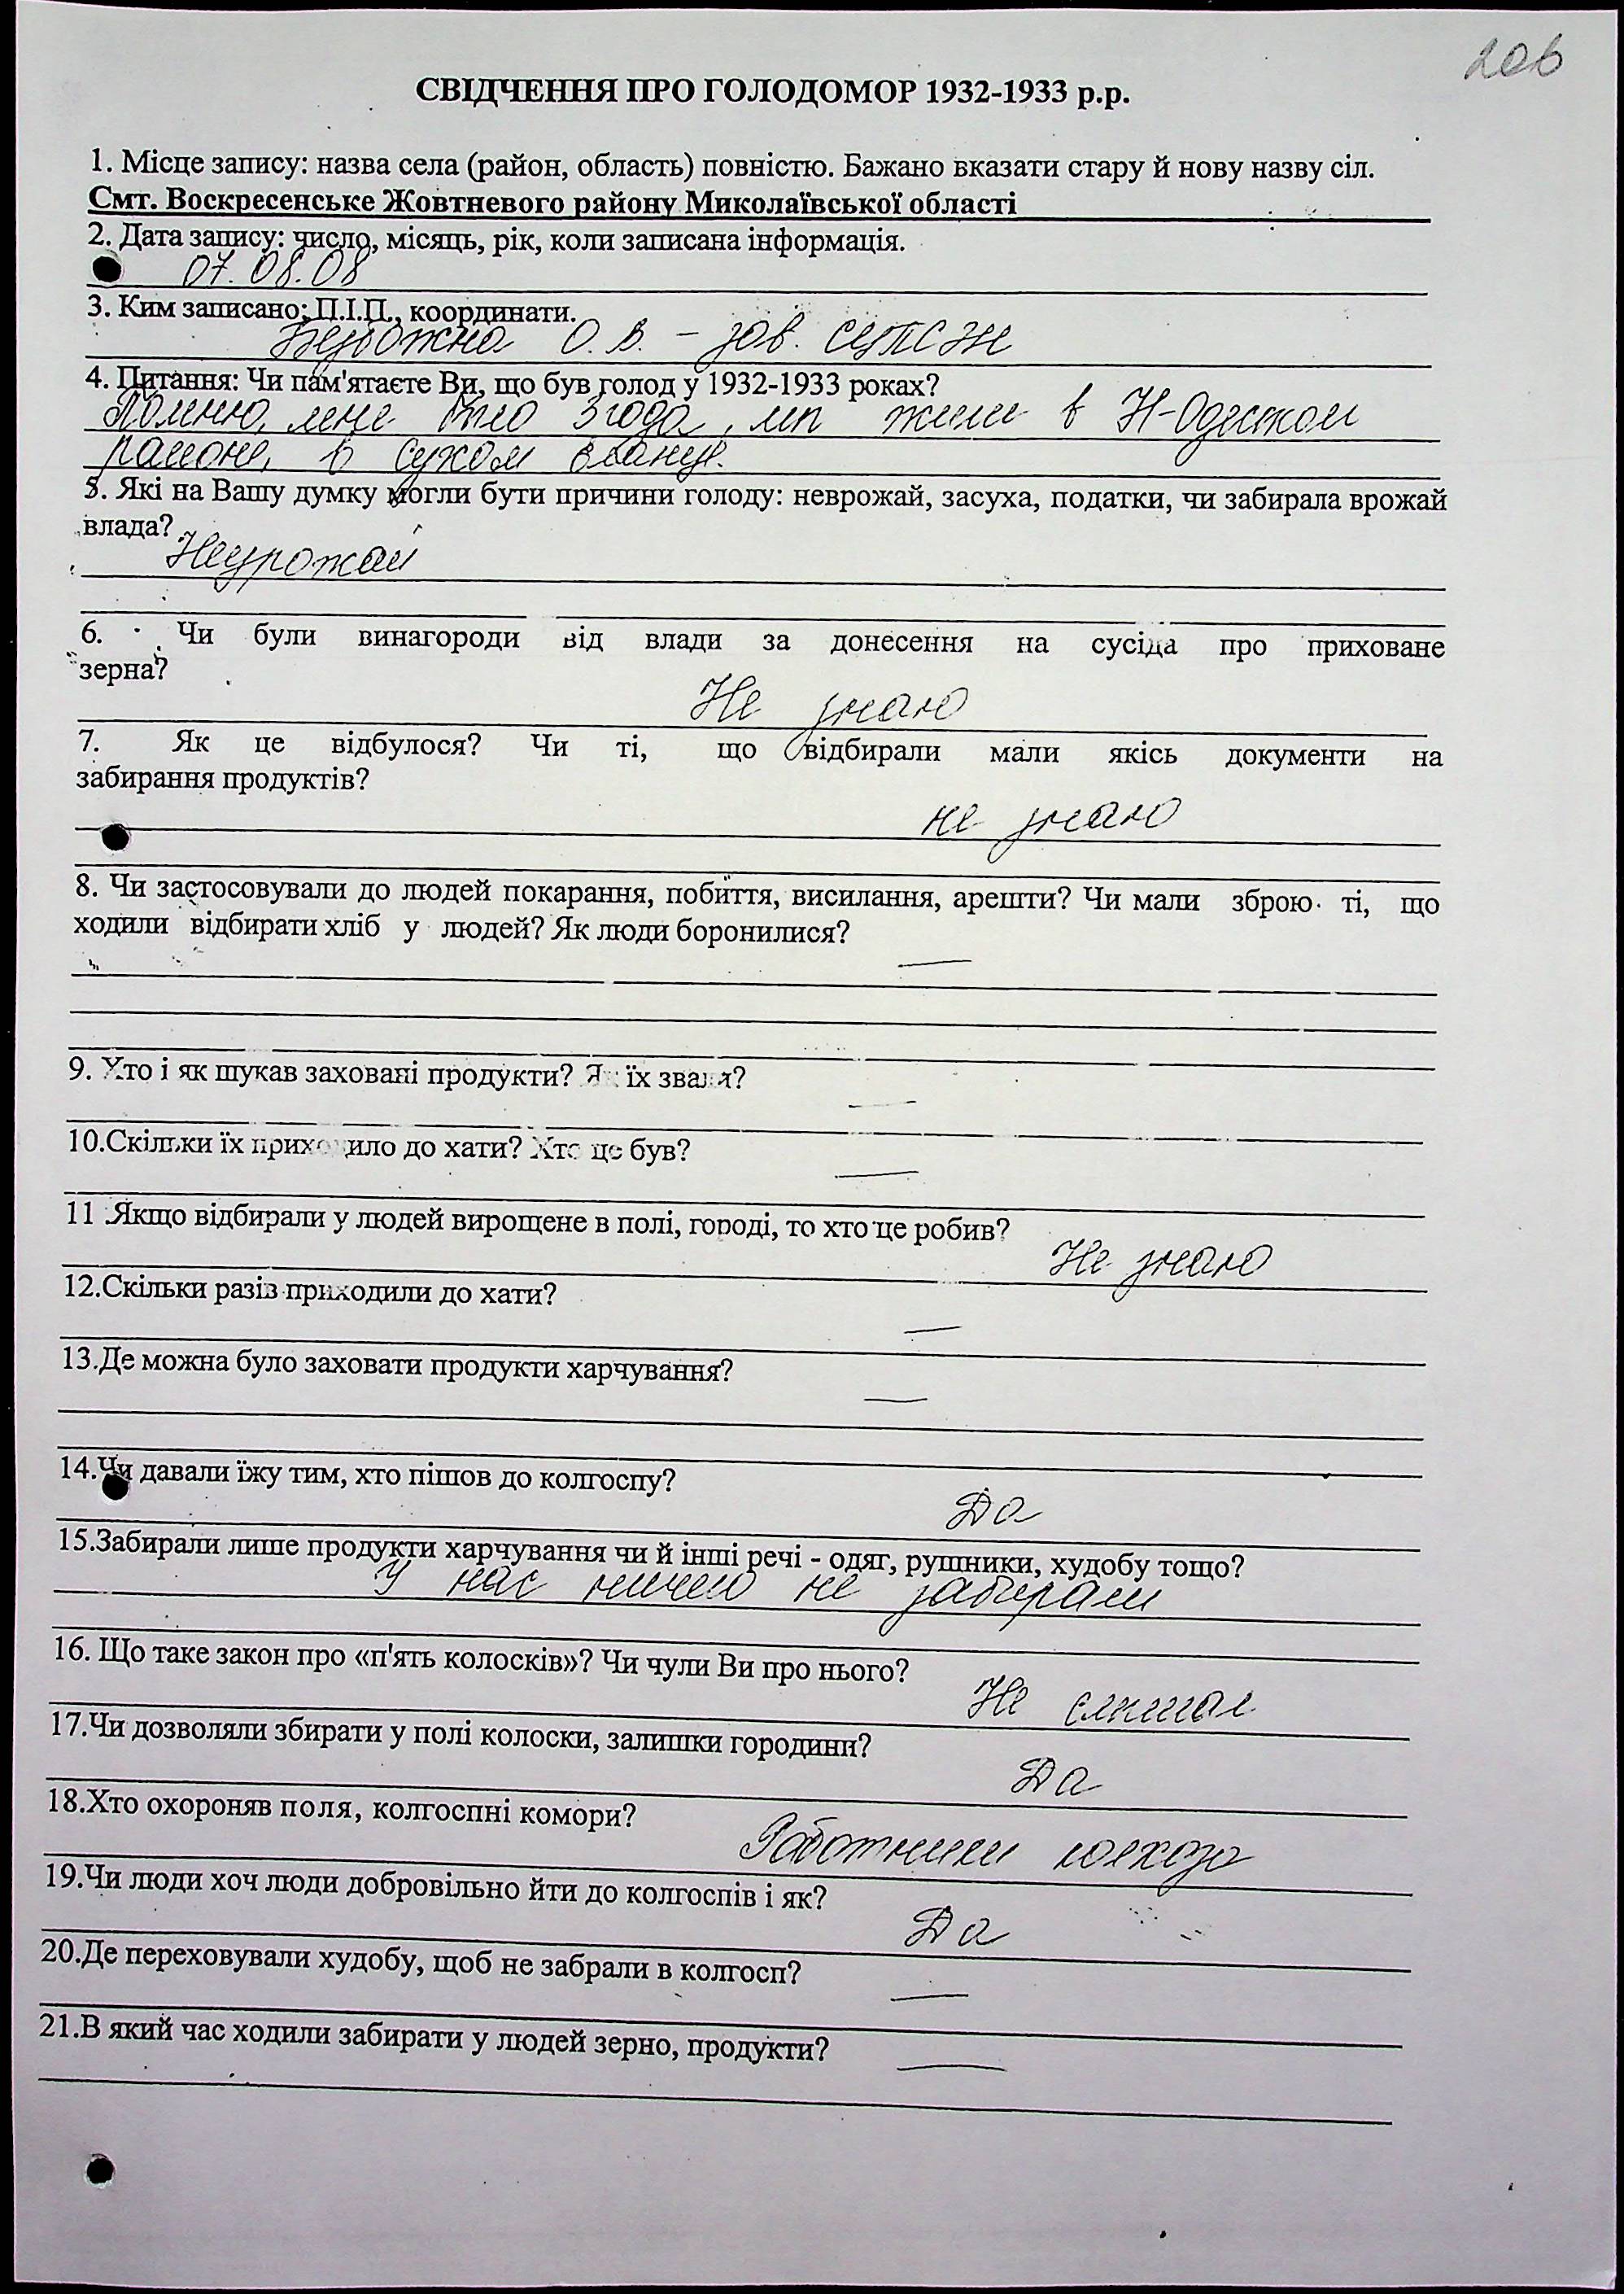 206
СВІДЧЕННЯ ПРО ГОЛОДОМОР 1932-1933 р.р.
1. Місце запису: назва села (район, область) повністю. Бажано вказати стару й нову назву сіл.
Смт. Воскресенське Жовтневого району Миколаївської області
2. Дата запису: число, місяць, рік, коли записана інформація.
07.08.08
3. Ким записано: П.І.П., координати.
О. В. – зав.
4. Питання: Чи пам'ятаєте Ви, що був голод у 1932-1933 роках?
Помню, мне было 3 года, мы жили в Н-Одесском
районе, в Сухом Еланце.
5. Які на Вашу думку могли бути причини голоду: неврожай, засуха, податки, чи забирала врожай
влада?
Неурожай
6. Чи були винагороди від влади за донесення на сусіда про приховане
зерна?
Не знаю
7. Як це відбулося? Чи ті, що відбирали мали якісь документи на
забирання продуктів?
не знаю
8. Чи застосовували до людей покарання, побиття, висилання, арешти? Чи мали зброю ті, що
ходили відбирати хліб у людей? Як люди боронилися?
—
9. Хто і як шукав заховані продукти? Як їх звали?
—
10.Скільки їх приходило до хати? Хто це був?
—
11 .Якщо відбирали у людей вирощене в полі, городі, то хто це робив?
Не знаю
12.Скільки разів приходили до хати?
—
13.Де можна було заховати продукти харчування?
—
14.Чи давали їжу тим, хто пішов до колгоспу?
Да
15.Забирали лише продукти харчування чи й інші речі - одяг, рушники, худобу тощо?
У нас ничего не забирали
16. Що таке закон про «п'ять колосків»? Чи чули Ви про нього?
Не слышал
17.Чи дозволяли збирати у полі колоски, залишки городини?
Да
18.Хто охороняв поля, колгоспні комори?
Работники колхоза
19.Чи люди хоч люди добровільно йти до колгоспів і як?
Да
20.Де переховували худобу, щоб не забрали в колгосп?
—
21.В який час ходили забирати у людей зерно, продукти?
—